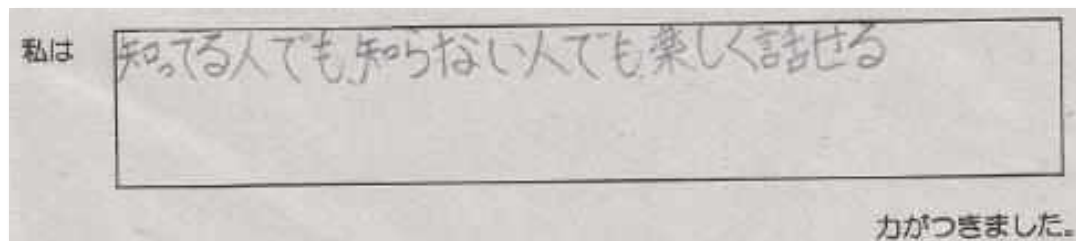 私は
知ってる人でも、知らない人でも楽しく話せる
力がつきました。